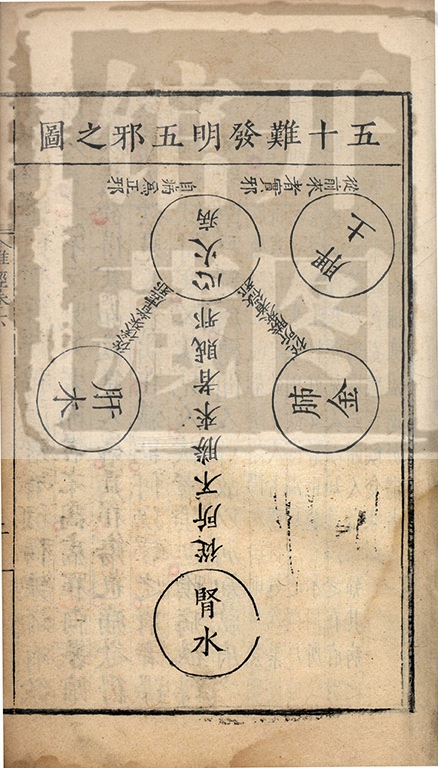 五十難發明五邪之圖
從前來者實邪
自病為正邪
脾土
心火病
從後來者虛邪
從所勝來者微邪
肝木
肺金
從所不勝來者賊邪
腎水